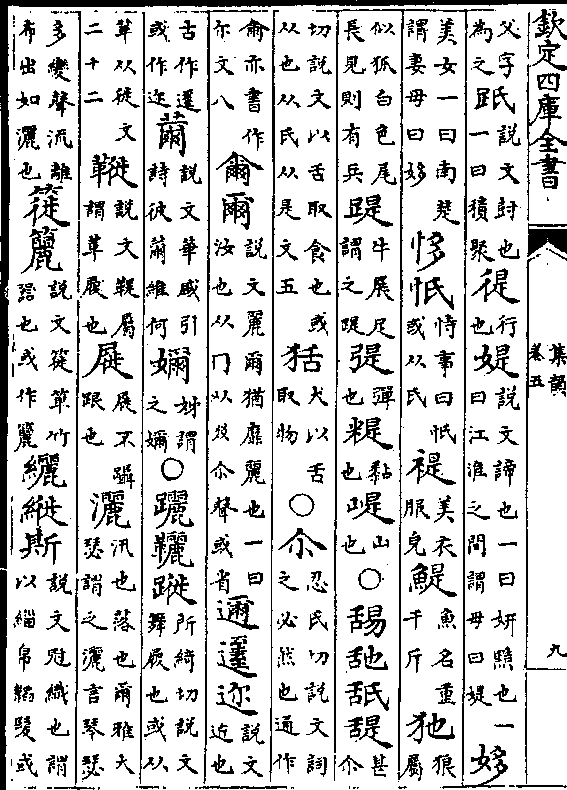 欽定四庫全書
集韻
卷五
九
父字為之 氏 說文封也一曰積聚 徥 行也 媞 說文諦也一曰妍黠也一曰江淮之間謂母曰媞 姼
美女一曰南楚謂妻母曰姼 恀忯 恃事曰忯或从氏 褆 美衣服皃 鯷 魚名重千斤 㹝 狼屬
似狐白色尾長見則有兵 踶 牛展足謂之踶 弫 彈也 䊓 黏也 崼 山也 ○舓䑛舐 甚尒
切說文以舌取食也或从也从氏从是文五 狧 犬以舌取物 ○尒 忍氏切說文詞之必然也通作
爾亦書作尔文八 爾 說文麗爾猶靡麗也一曰汝也从冂从㸚尒聲或省 邇迩 說文近也
古作或作迩 薾 說文華盛引詩彼薾維何 嬭 姊謂之嬭 ○躧蹝 所綺切說文舞履也或从
革从徙文二十二 鞮 說文鞮屬謂草履也 屣 履不躡跟也 灑 汛也落也爾雅大瑟謂之灑言琴瑟
多變聲流離布出如灑也 簁籭 說文簁箄竹器也或作籭 纚縰斯 說文冠織也謂以緇帛韜髮或